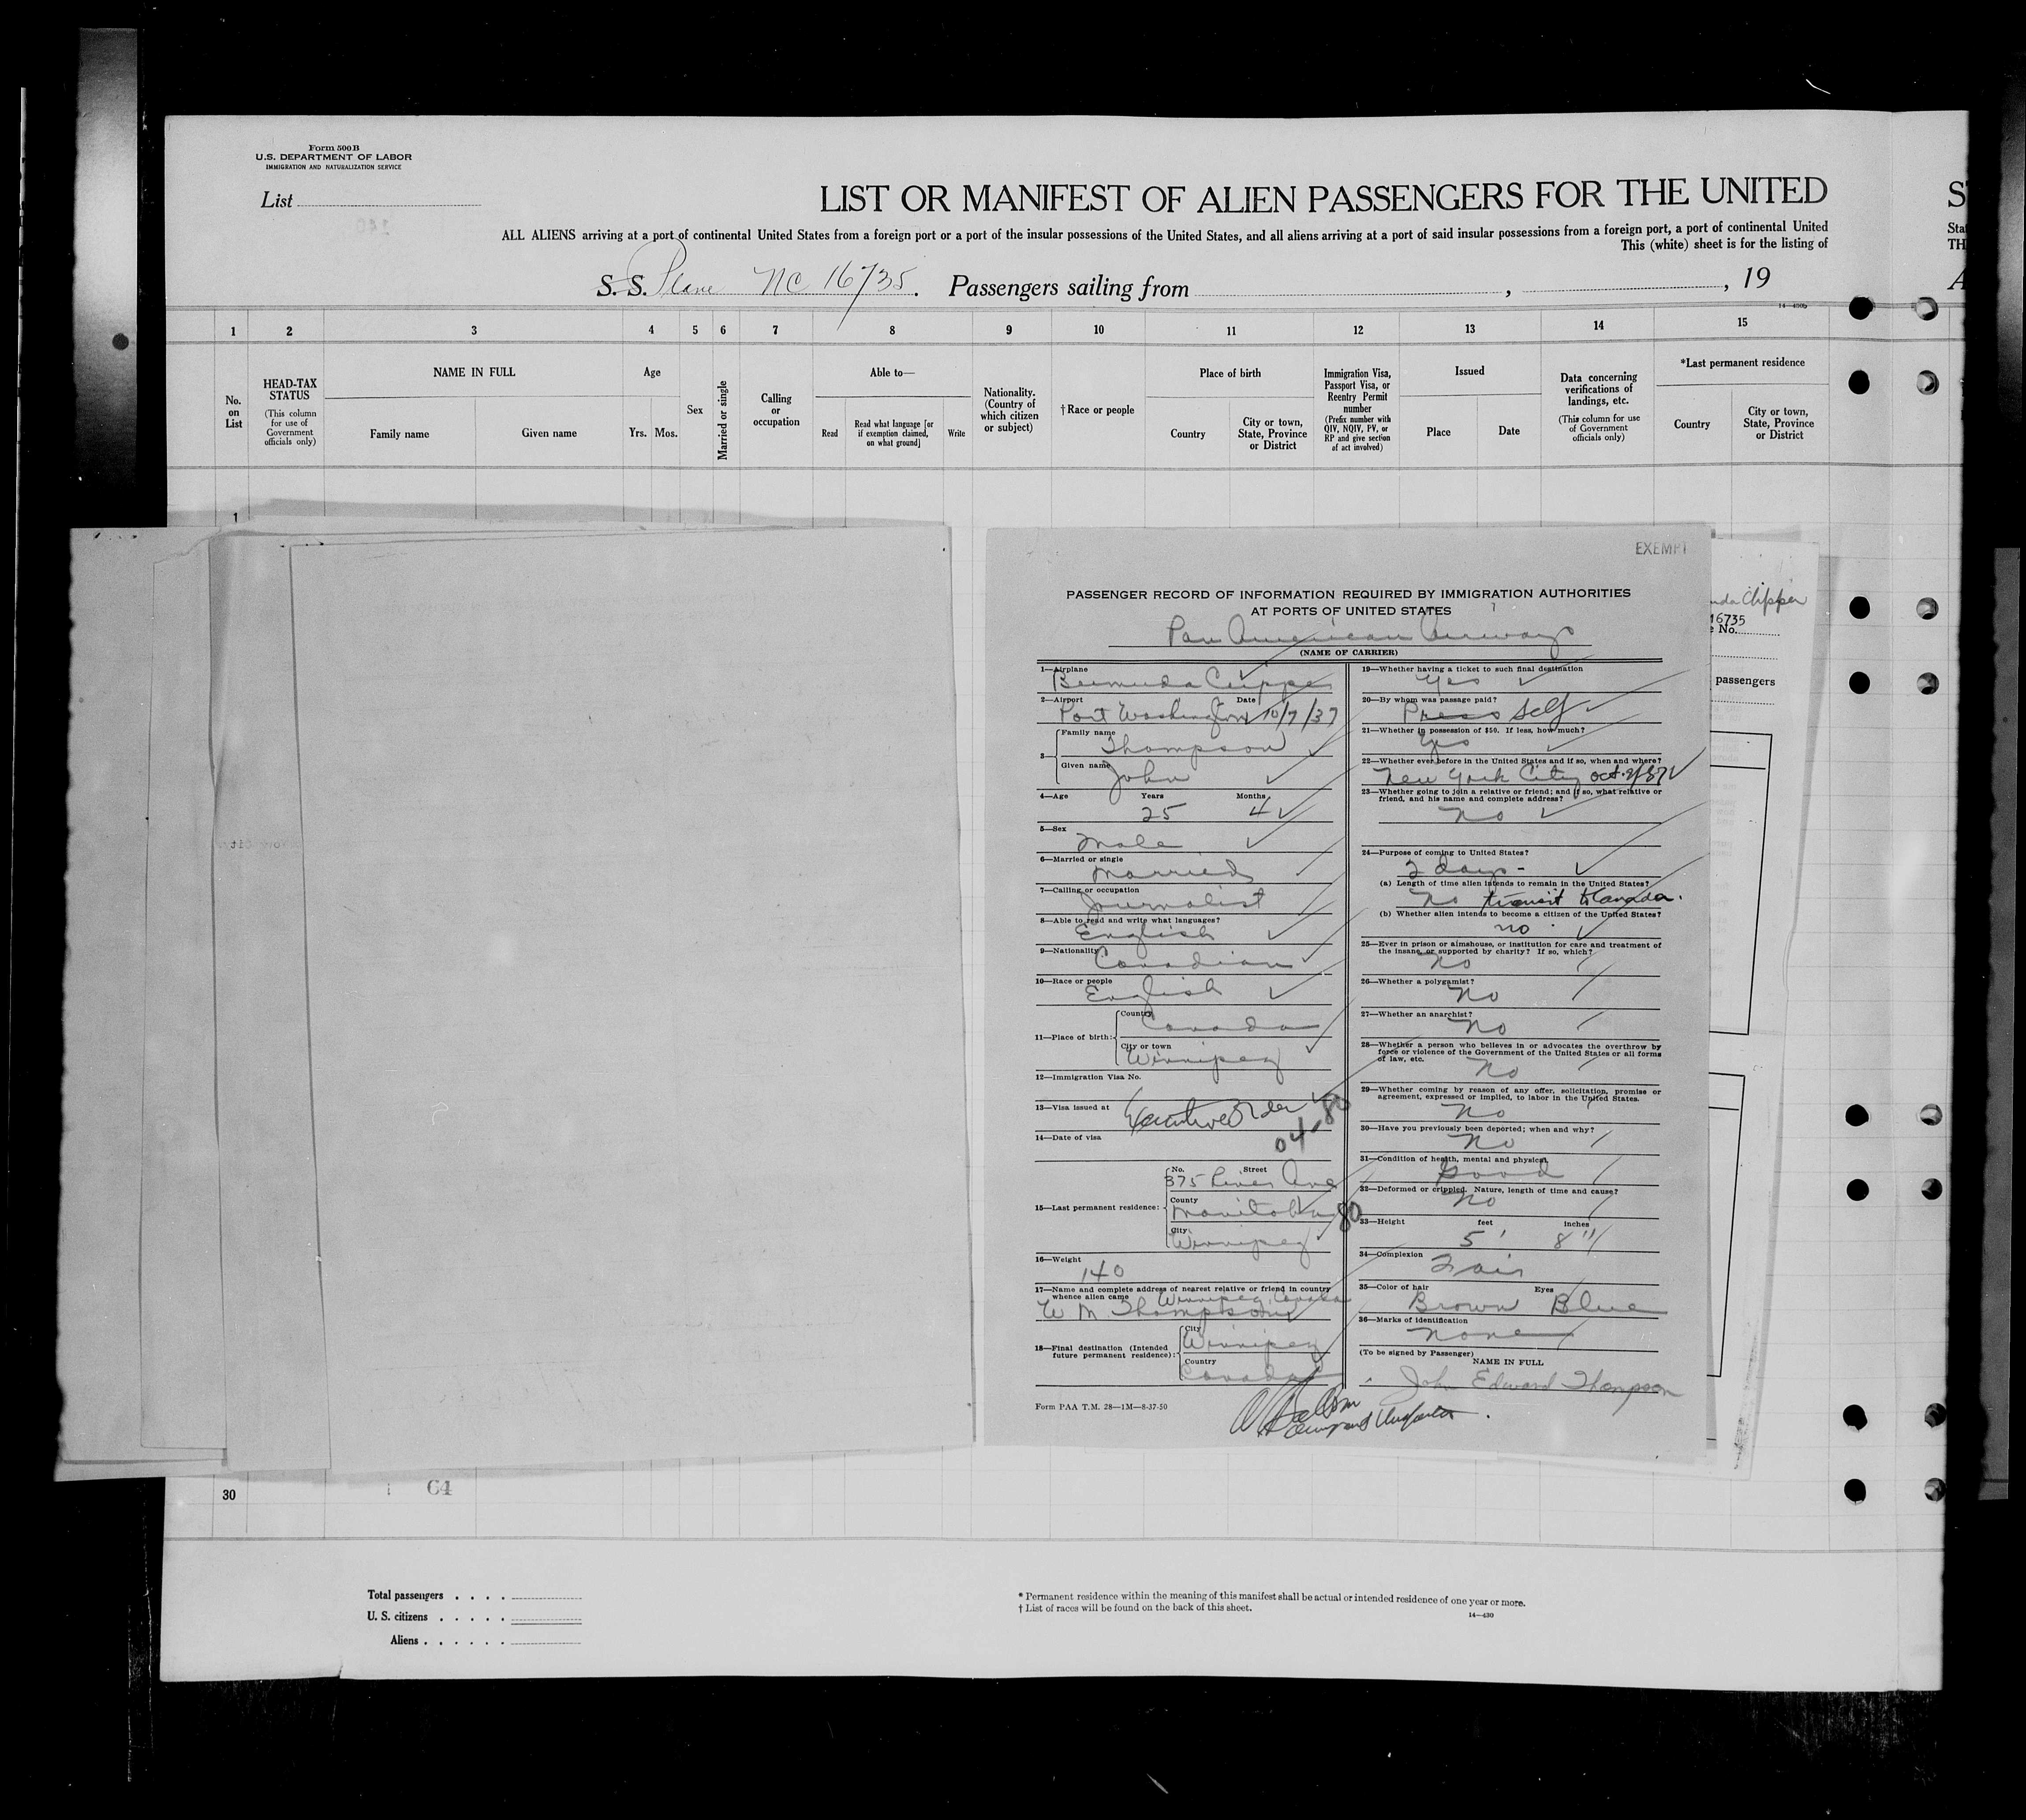 Form 500B
U.S. DEPARTMENT OF LABOR
IMMIGRATION AND NATURALIZATION SERVICE
List
LIST OR MANIFEST OF ALIEN PASSENGERS FOR THE UNITED
ALL ALIENS arriving at a port of continental United States from a foreign port or a port of the insular possessions of the United States, and all aliens arriving at a port of said insular possessions from a foreign port, a port of continental United
This (white) sheet is for the listing of
S. S. Plane NC 16735. Passengers sailing from , , 19
14—430b
1 2 3 4 5 6 7 8 9 10 11 12 13 14 15
No. on List
HEAD-TAX STATUS
(This column for use of Government officials only)
NAME IN FULL
Family name Given name
Age
Yrs. Mos.
Sex
Married or single
Calling or occupation
Able to—
Read
Read what language [or if exemption claimed, on what ground]
Write
Nationality. (Country of which citizen or subject)
†Race or people
Place of birth
Country
City or town, State, Province or District
Immigration Visa, Passport Visa, or Reentry Permit number
(Prefix number with QIV, NQIV, PV, or RP and give section of act involved)
Issued
Place Date
Data concerning verifications of landings, etc.
(This column for use of Government officials only)
*Last permanent residence
Country
City or town, State, Province or District
1
EXEMPT
PASSENGER RECORD OF INFORMATION REQUIRED BY IMMIGRATION AUTHORITIES
AT PORTS OF UNITED STATES
Pan American Airways
(NAME OF CARRIER)
1—Airplane
Bermuda Clipper
2—Airport Date
Port Washington 10/7/37
3—
Family name
Thompson
Given name
John
4—Age Years Months
25 4
5—Sex
Male
6—Married or single
Married
7—Calling or occupation
Journalist
8—Able to read and write what languages?
English
9—Nationality
Canadian
10—Race or people
English
11—Place of birth:
Country
Canada
City or town
Winnipeg
12—Immigration Visa No.
13—Visa issued at
Executive Order
04-80
14—Date of visa
15—Last permanent residence:
No. Street
375 River Ave
County
Manitoba
80
City
Winnipeg
16—Weight
140
17—Name and complete address of nearest relative or friend in country
whence alien came Winnipeg, Canada
W M. Thompson
18—Final destination (Intended future permanent residence):
City
Winnipeg
Country
Canada
Form PAA T.M. 28—1M—8-37-50
19—Whether having a ticket to such final destination
Yes
20—By whom was passage paid?
Press Self
21—Whether in possession of $50. If less, how much?
Yes
22—Whether ever before in the United States and if so, when and where?
New York City Oct.
23—Whether going to join a relative or friend; and if so, what relative or
friend, and his name and complete address?
No
24—Purpose of coming to United States?
2 days -
(a) Length of time alien intends to remain in the United States?
No transit to Canada.
(b) Whether alien intends to become a citizen of the United States?
no
25—Ever in prison or almshouse, or institution for care and treatment of
the insane, or supported by charity? If so, which?
No
26—Whether a polygamist?
No
27—Whether an anarchist?
No
28—Whether a person who believes in or advocates the overthrow by
force or violence of the Government of the United States or all forms
of law, etc.
No
29—Whether coming by reason of any offer, solicitation, promise or
agreement, expressed or implied, to labor in the United States.
No
30—Have you previously been deported; when and why?
No
31—Condition of health, mental and physical.
Good
32—Deformed or crippled. Nature, length of time and cause?
No
33—Height feet inches
5' 8"
34—Complexion
Fair
35—Color of hair Eyes
Brown Blue
36—Marks of identification
None
(To be signed by Passenger)
NAME IN FULL
John Edward Thompson
uda Clipper
16735
No.
passengers
30
64
Total passengers
U. S. citizens
Aliens
* Permanent residence within the meaning of this manifest shall be actual or intended residence of one year or more.
† List of races will be found on the back of this sheet.
14—430